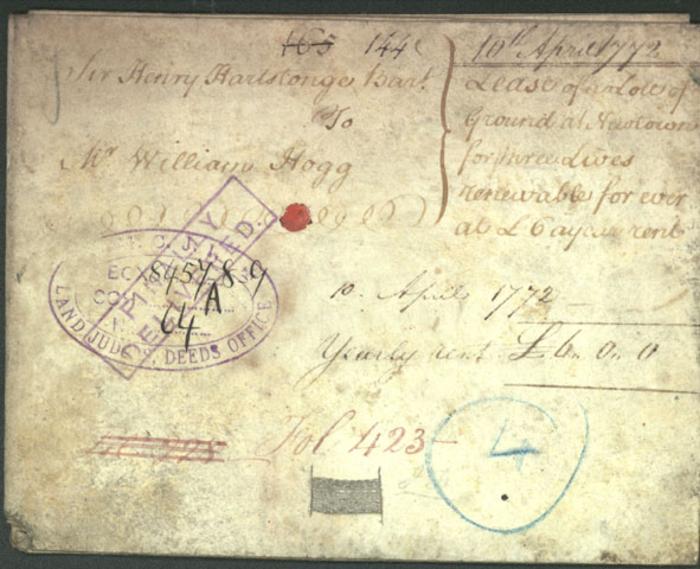 165 144
Sir Henry Hartstonge Bart.
To
Mr William Hogg
10th April 1772
Lease of a Lott of
Ground at Newtown
for three Lives
renewable for ever
at £ 6 a year rent
BOX 845789
A
64
LAND JUDGES DEEDS OFFICE
10 April 1772
Yearly rent £6 . 0 . 0
Fol 423
4